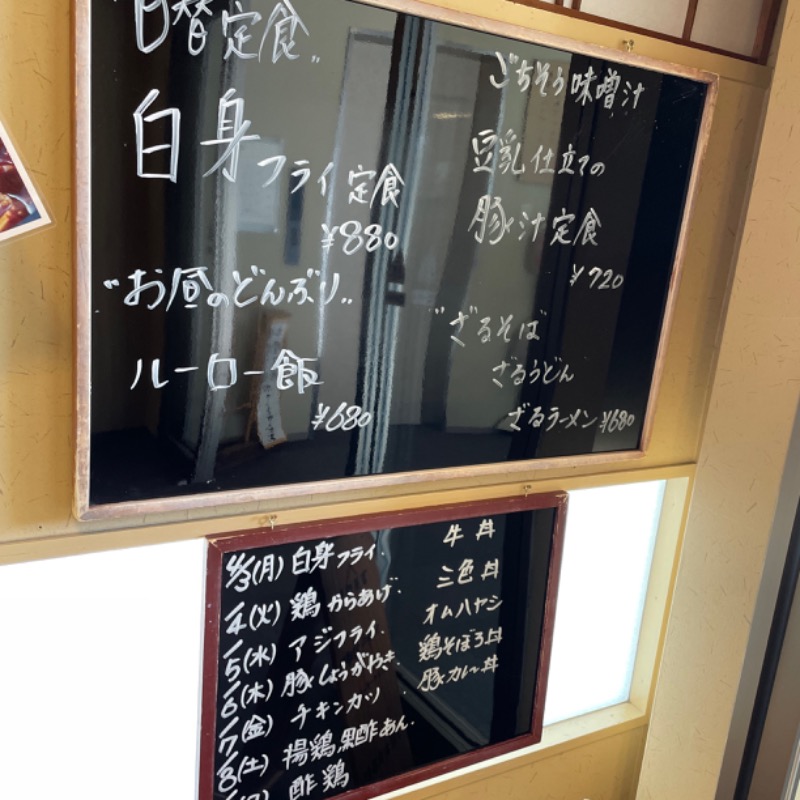 "日替定食"
白身フライ定食
¥880
"お昼のどんぶり"
ルーロー飯
¥680
ごちそう味噌汁
豆乳仕立ての
豚汁定食
¥720
"ざるそば
ざるうどん
ざるラーメン ¥680
6/3(月) 白身フライ. 牛丼
/4(火) 鶏からあげ. 三色丼
/5(水) アジフライ. オムハヤシ
/6(木) 豚しょうがやき. 鶏そぼろ丼
/7(金) チキンカツ. 豚カレー丼
/8(土) 揚鶏黒酢あん.
酢鶏